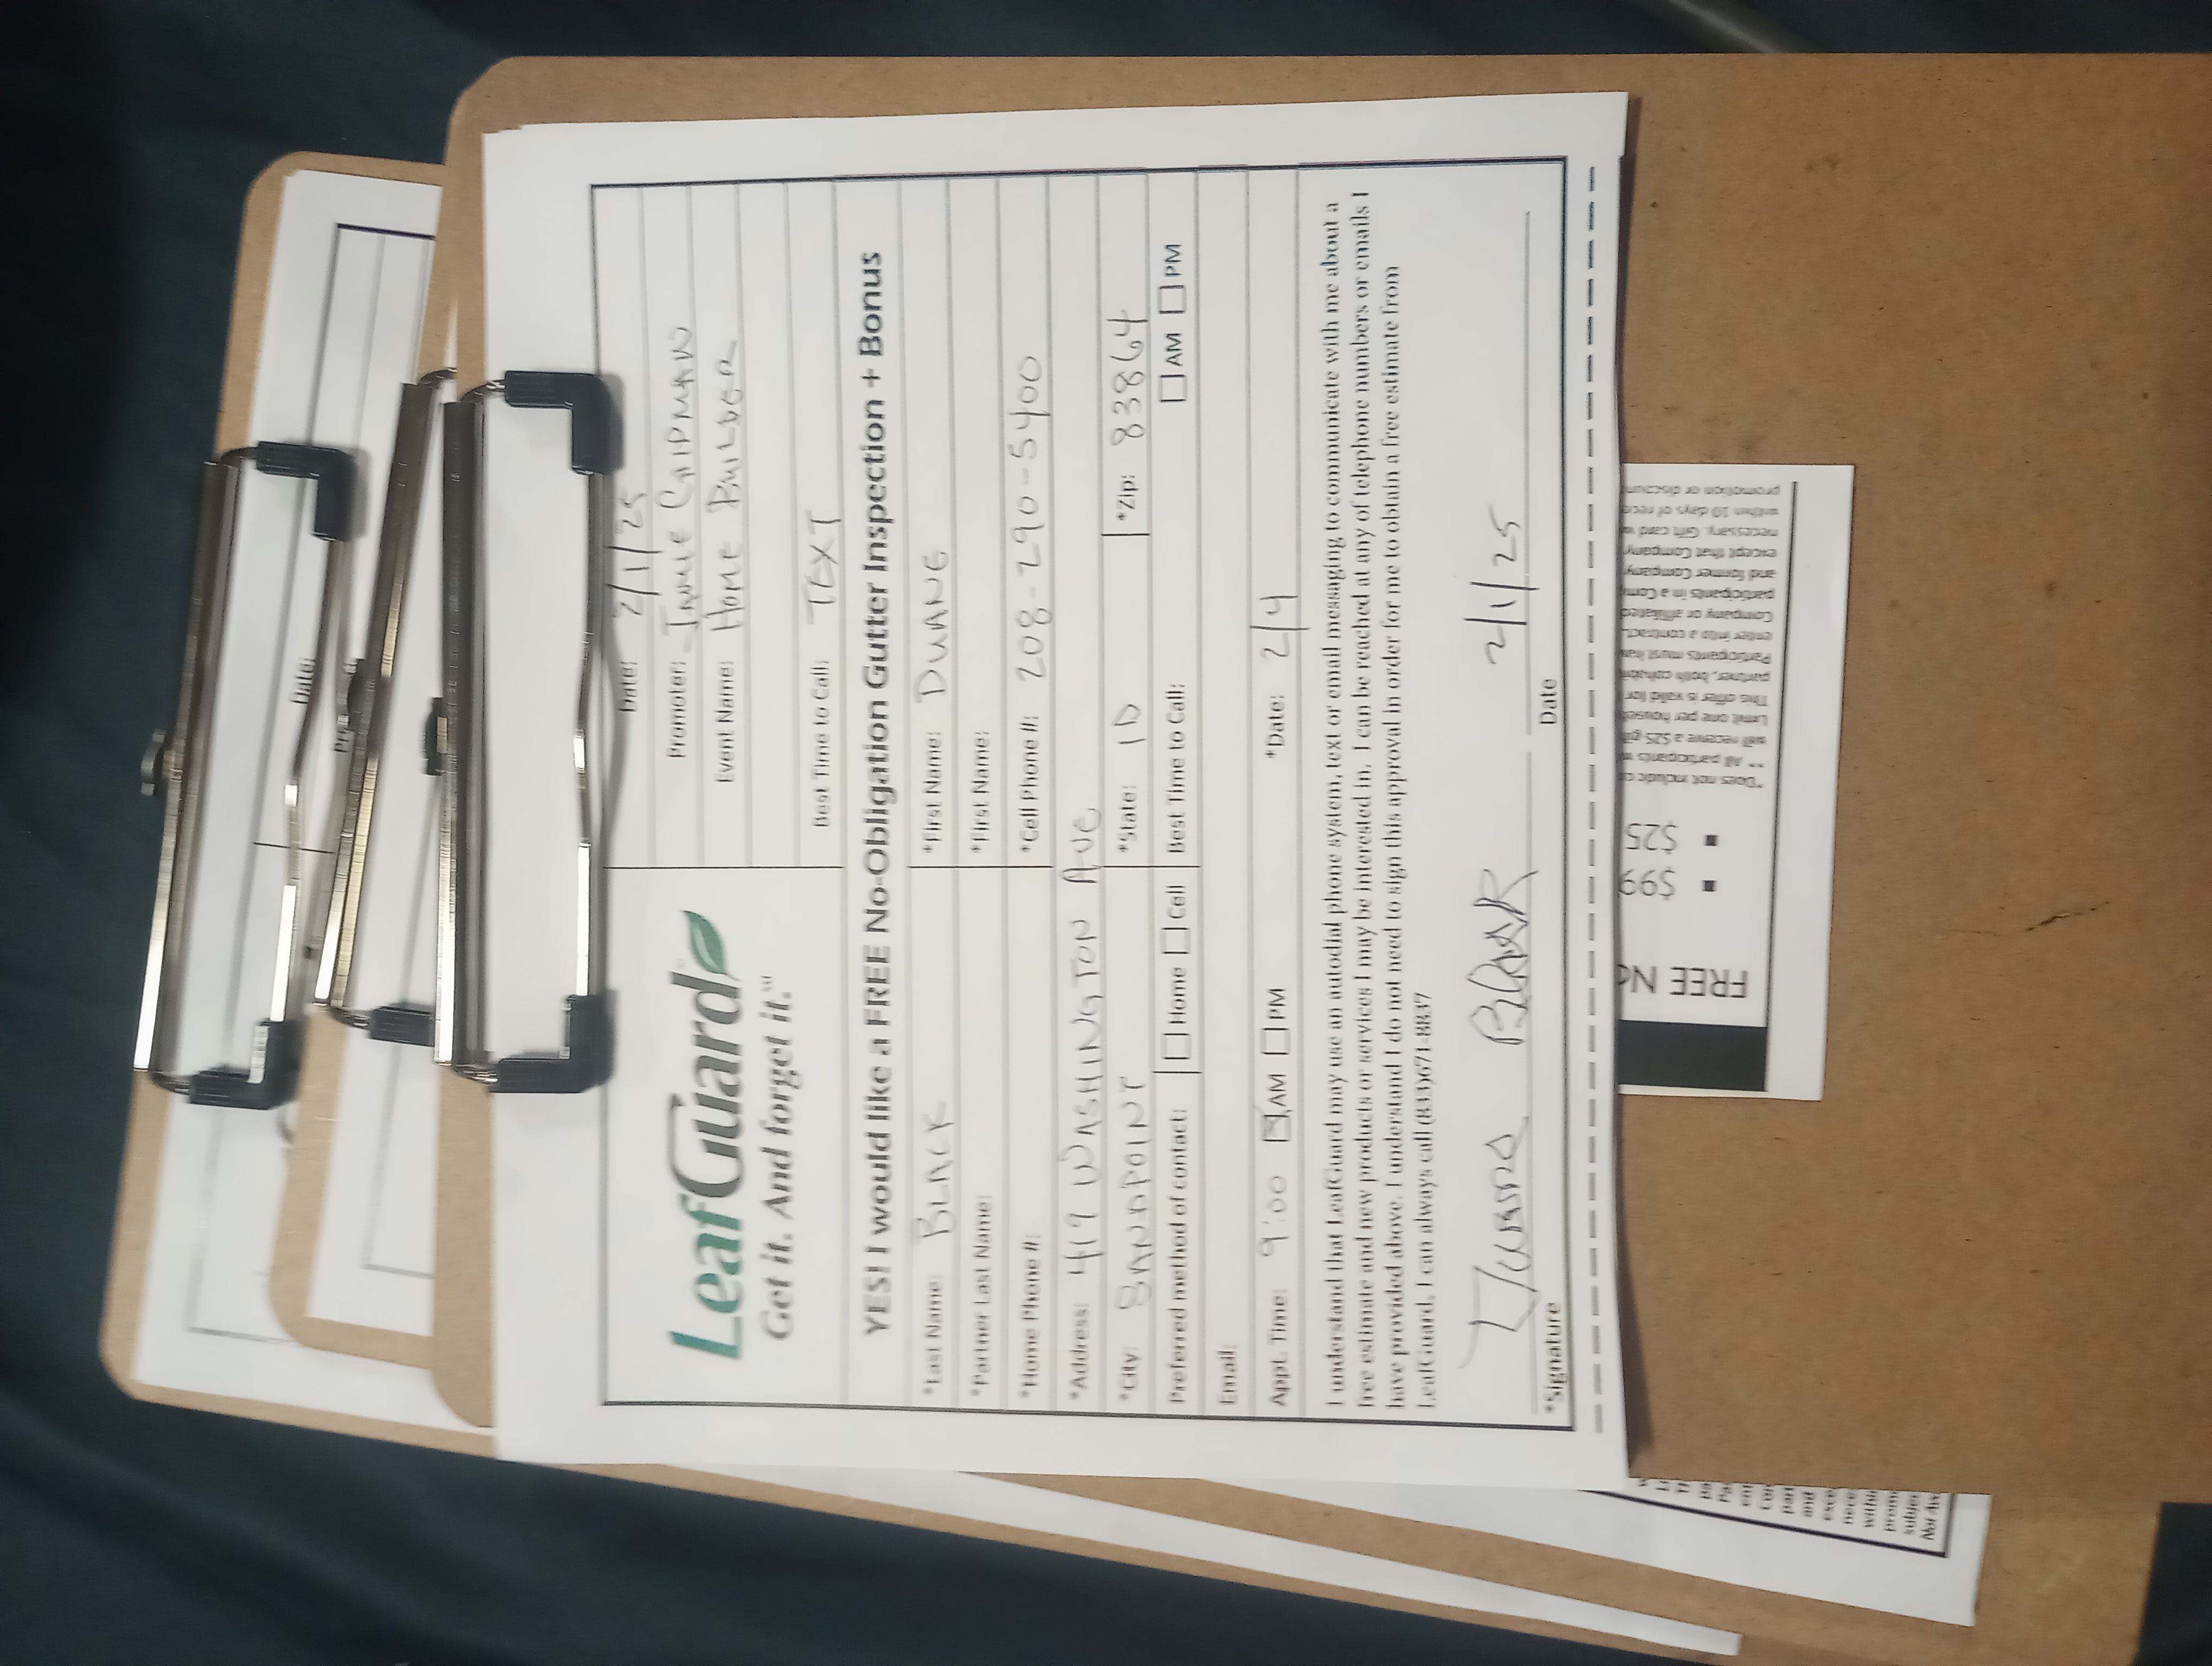 Date:
Date: 2/1/25
Promoter: JAMIE CHIPMAN
Event Name: HOME BUILDER
LeafGuard
Get it. And forget it.
Best Time to Call: TEXT
YES! I would like a FREE No-Obligation Gutter Inspection + Bonus
*Last Name: BLACK *First Name: DUANE
*Partner Last Name: *First Name:
*Home Phone #: *Cell Phone #: 208-290-5400
*Address: 419 WASHINGTON AVE
*City: SANDPOINT *State: ID *Zip: 83864
Preferred method of contact: Home Cell Best Time to Call: AM PM
Email:
Appt. Time: 9:00 AM PM *Date: 2/4
I understand that LeafGuard may use an autodial phone system, text or email messaging to communicate with me about a
free estimate and new products or services I may be interested in. I can be reached at any of telephone numbers or emails I
have provided above. I understand I do not need to sign this approval in order for me to obtain a free estimate from
LeafGuard. I can always call (833)671-8837
Duane Black 2/1/25
*Signature Date
FREE
$99
$25
*Does not include
** All participants
will receive a $25
Limit one per
This offer is valid for
partner, both
Participants must
enter into a contract.
Company or affiliated
participants in a
and former Company
except that Company
necessary. Gift card
within 10 days of
promotion or
and